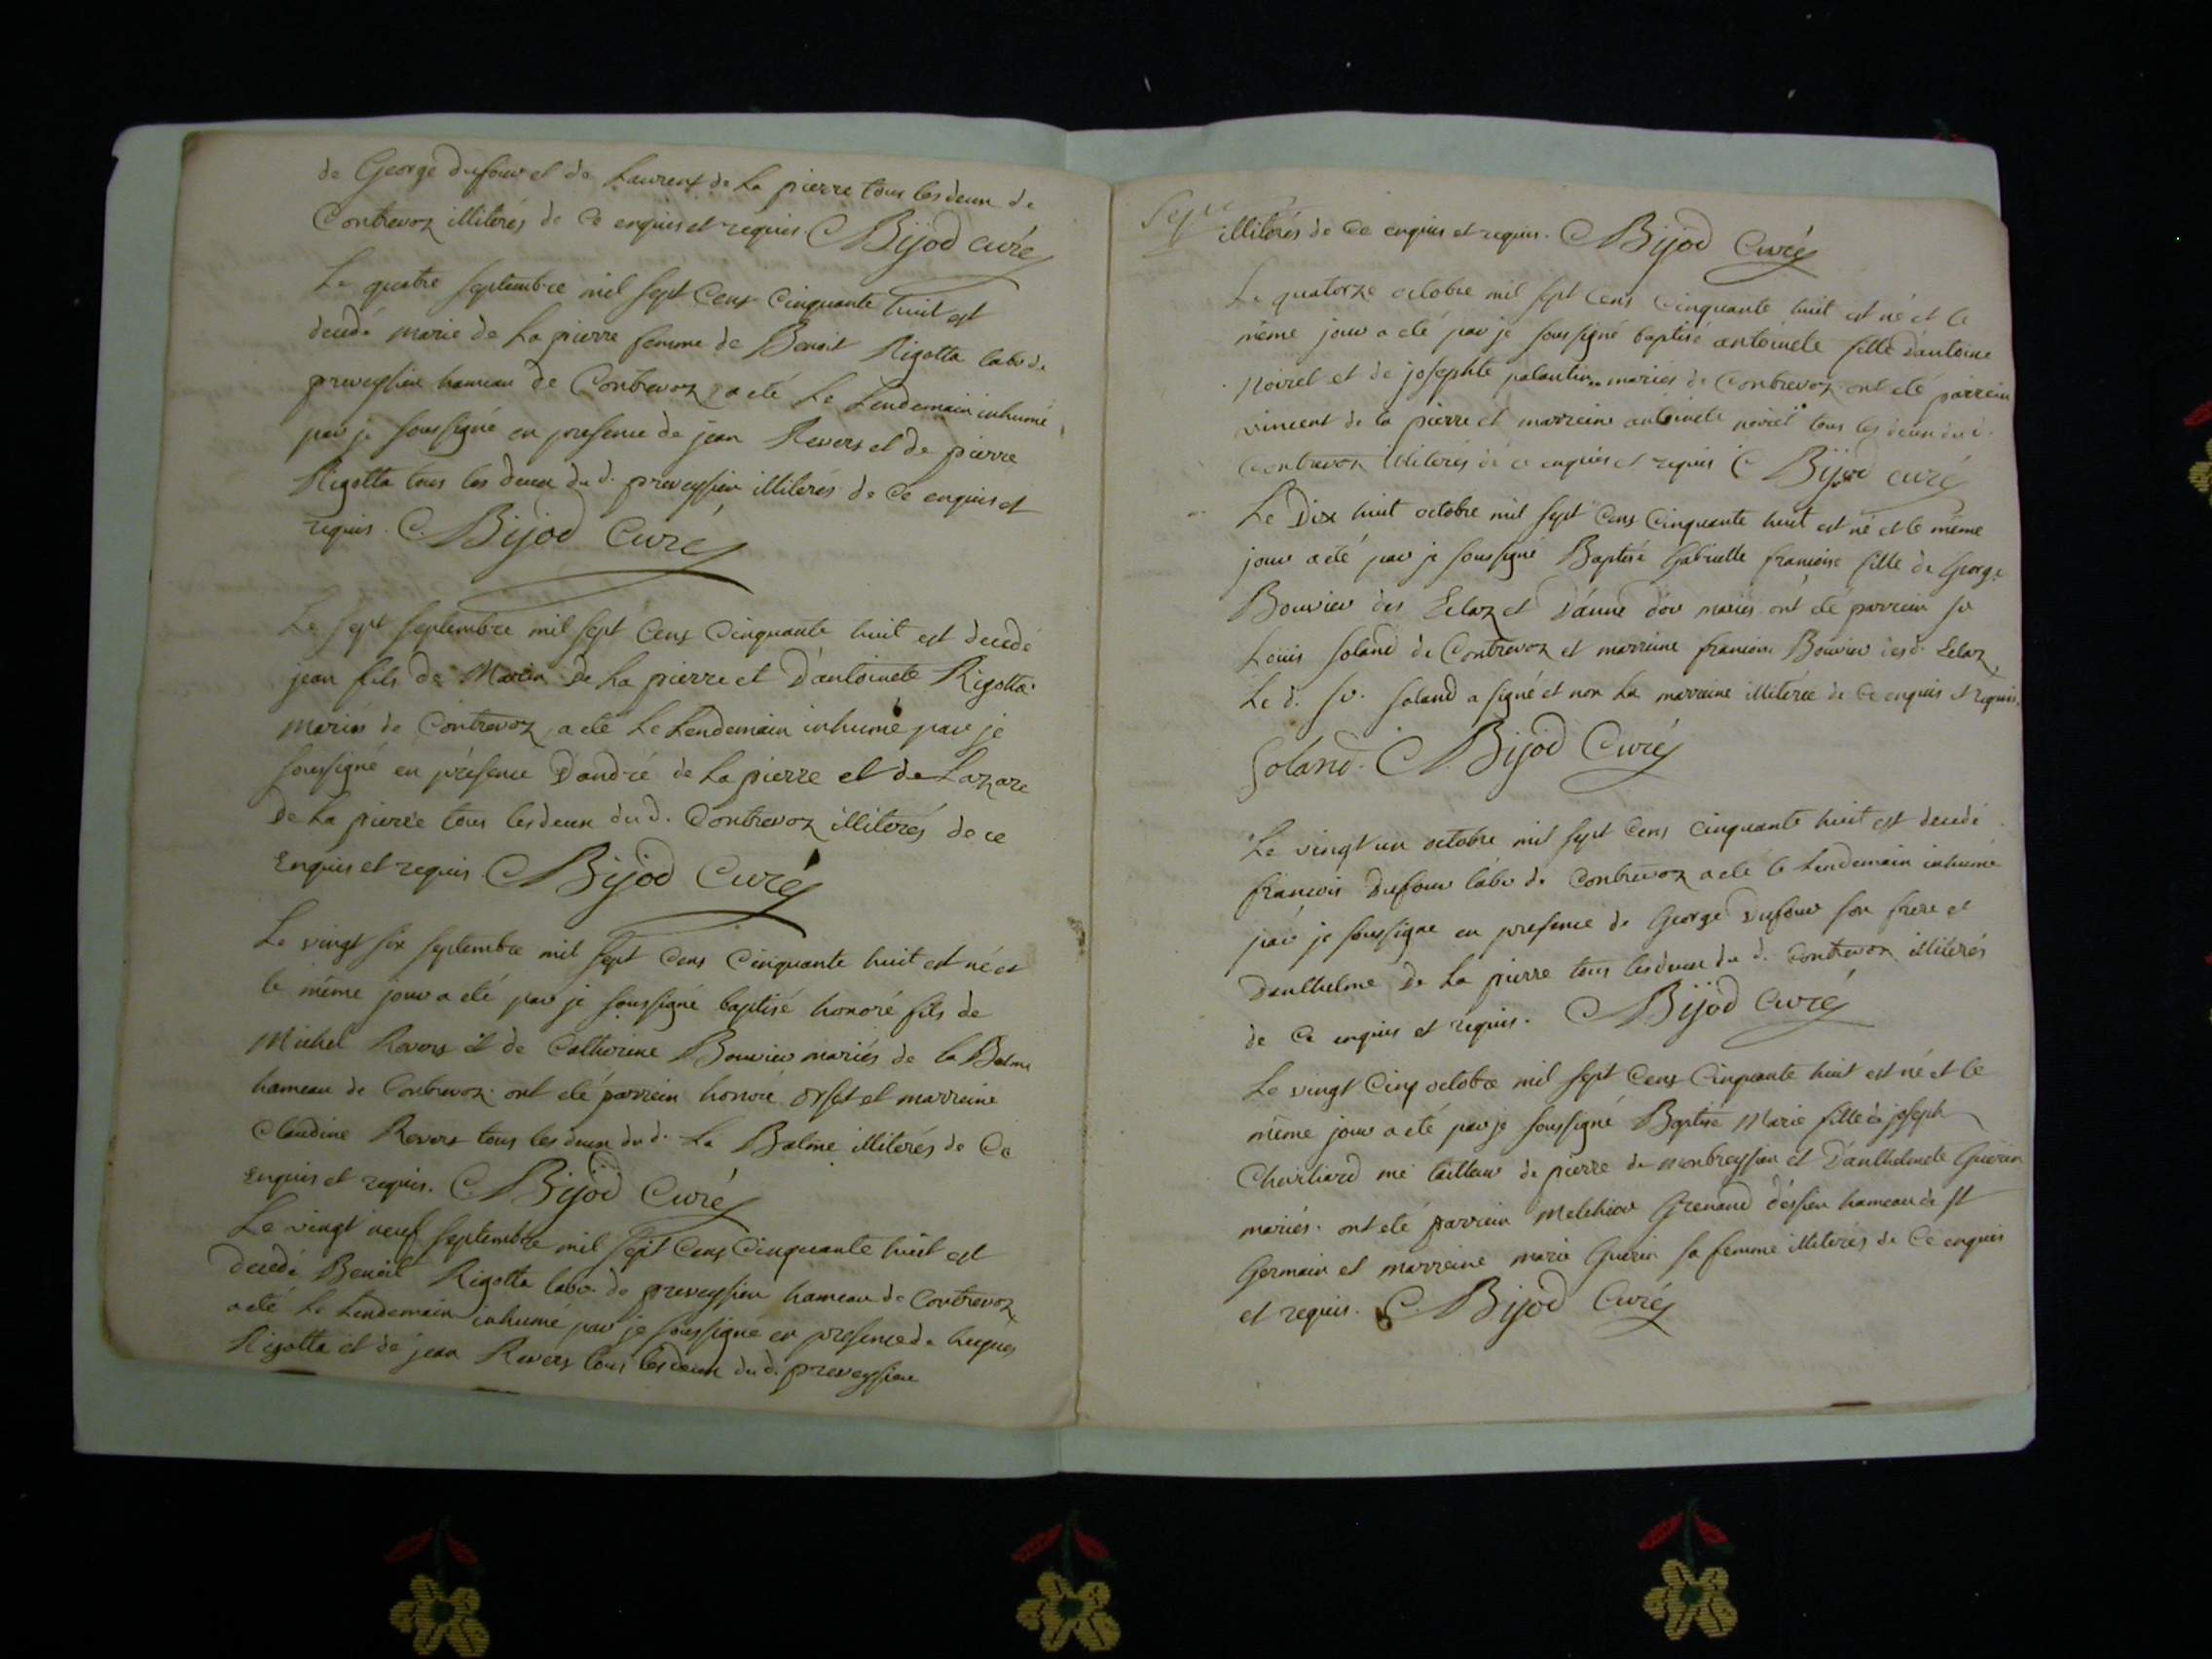 de George dufour et de Laurent de La pierre tous les deux de
Contrevoz illiterés de Ce enquis et requis. C Bijod curé
Le quatre septembre mil sept Cens Cinquante huit est
decedé marie de La pierre femme de Benoit Rigotta labr de
preveyssieu hameau de Contrevoz, a eté Le Lendemain inhumé
par je soussigné en presence de jean Revers et de pierre
Rigotta tous les deux du d. preveyssieu illiterés de Ce enquis et
requis. C. Bijod Curé
Le sept septembre mil sept Cens Cinquante huit est decedé
jean fils de Martin De La pierre et D'antoinete Rigotta
mariés de Contrevoz, a eté Le Lendemain inhumé par je
soussigné en présence D'andré de La pierre et de Lazare
De La pierre tous les deux du d. Contrevoz illiterés de ce
Enquis et requis C Bijod Curé
Le vingt six septembre mil sept Cens Cinquante huit est né et
le même jour a eté par je soussigné baptisé honoré fils de
Michel Revers et de Catherine Bouvier mariés de la Balme
hameau de Contrevoz. ont eté parrein honoré orset et marreine
Claudine Revers tous les deux du d. La Balme illiterés de Ce
Enquis et requis. C Bijod Curé
Le vingt neuf septembre mil sept Cens Cinquante huit est
decedé Benoit Rigotta labr. de preveyssieu hameau de Contrevoz
a eté Le Lendemain inhumé par je soussigné en presence de hugues
Rigotta et de jean Revers tous les deux du d. preveyssieu
illiterés de Ce enquis et requis. C Bijod Curé
Le quatorze octobre mil sept Cens Cinquante huit est né et le
même jour a eté par je soussigné baptisé antoinete fille d'antoine
Noiret et de josephte palantin mariés de Contrevoz. ont eté parrein
vincent de la pierre et marreine antoinete noiret tous les deux du d.
Contrevoz illiterés de ce enquis et requis C Bijod curé
Le Dix huit octobre mil sept Cens Cinquante huit est né et le même
jour a eté par je soussigné Baptisé Gabrielle francoise fille de George
Bouvier des Eclaz et D'anne dor mariés. ont eté parrein sr
Loüis Soland de Contrevoz et marreine francoise Bouvier des d. Eclaz,
Le d. sr. Soland a signé et non La marreine illiterée de Ce enquis et requis.
Soland. C Bijod Curé
Le vingt un octobre mil sept Cens Cinquante huit est decedé
francois Dufour labr de Contrevoz a eté le Lendemain inhumé
par je soussigné en presence de George Dufour son frere et
Danthelme De La pierre tous les deux du d. Contrevoz illiterés
de Ce enquis et requis. C Bijod Curé
Le vingt Cinq octobre mil sept Cens Cinquante huit est né et le
même jour a eté par je soussigné Baptisé Marie fille de joseph
me tailleur de pierre de et D'anthelmete Guerin
mariés. ont eté parrein Melchior Grenaud hameau de st
Germain et marreine marie Guerin sa femme illiterés de Ce enquis
et requis. C. Bijod Curé